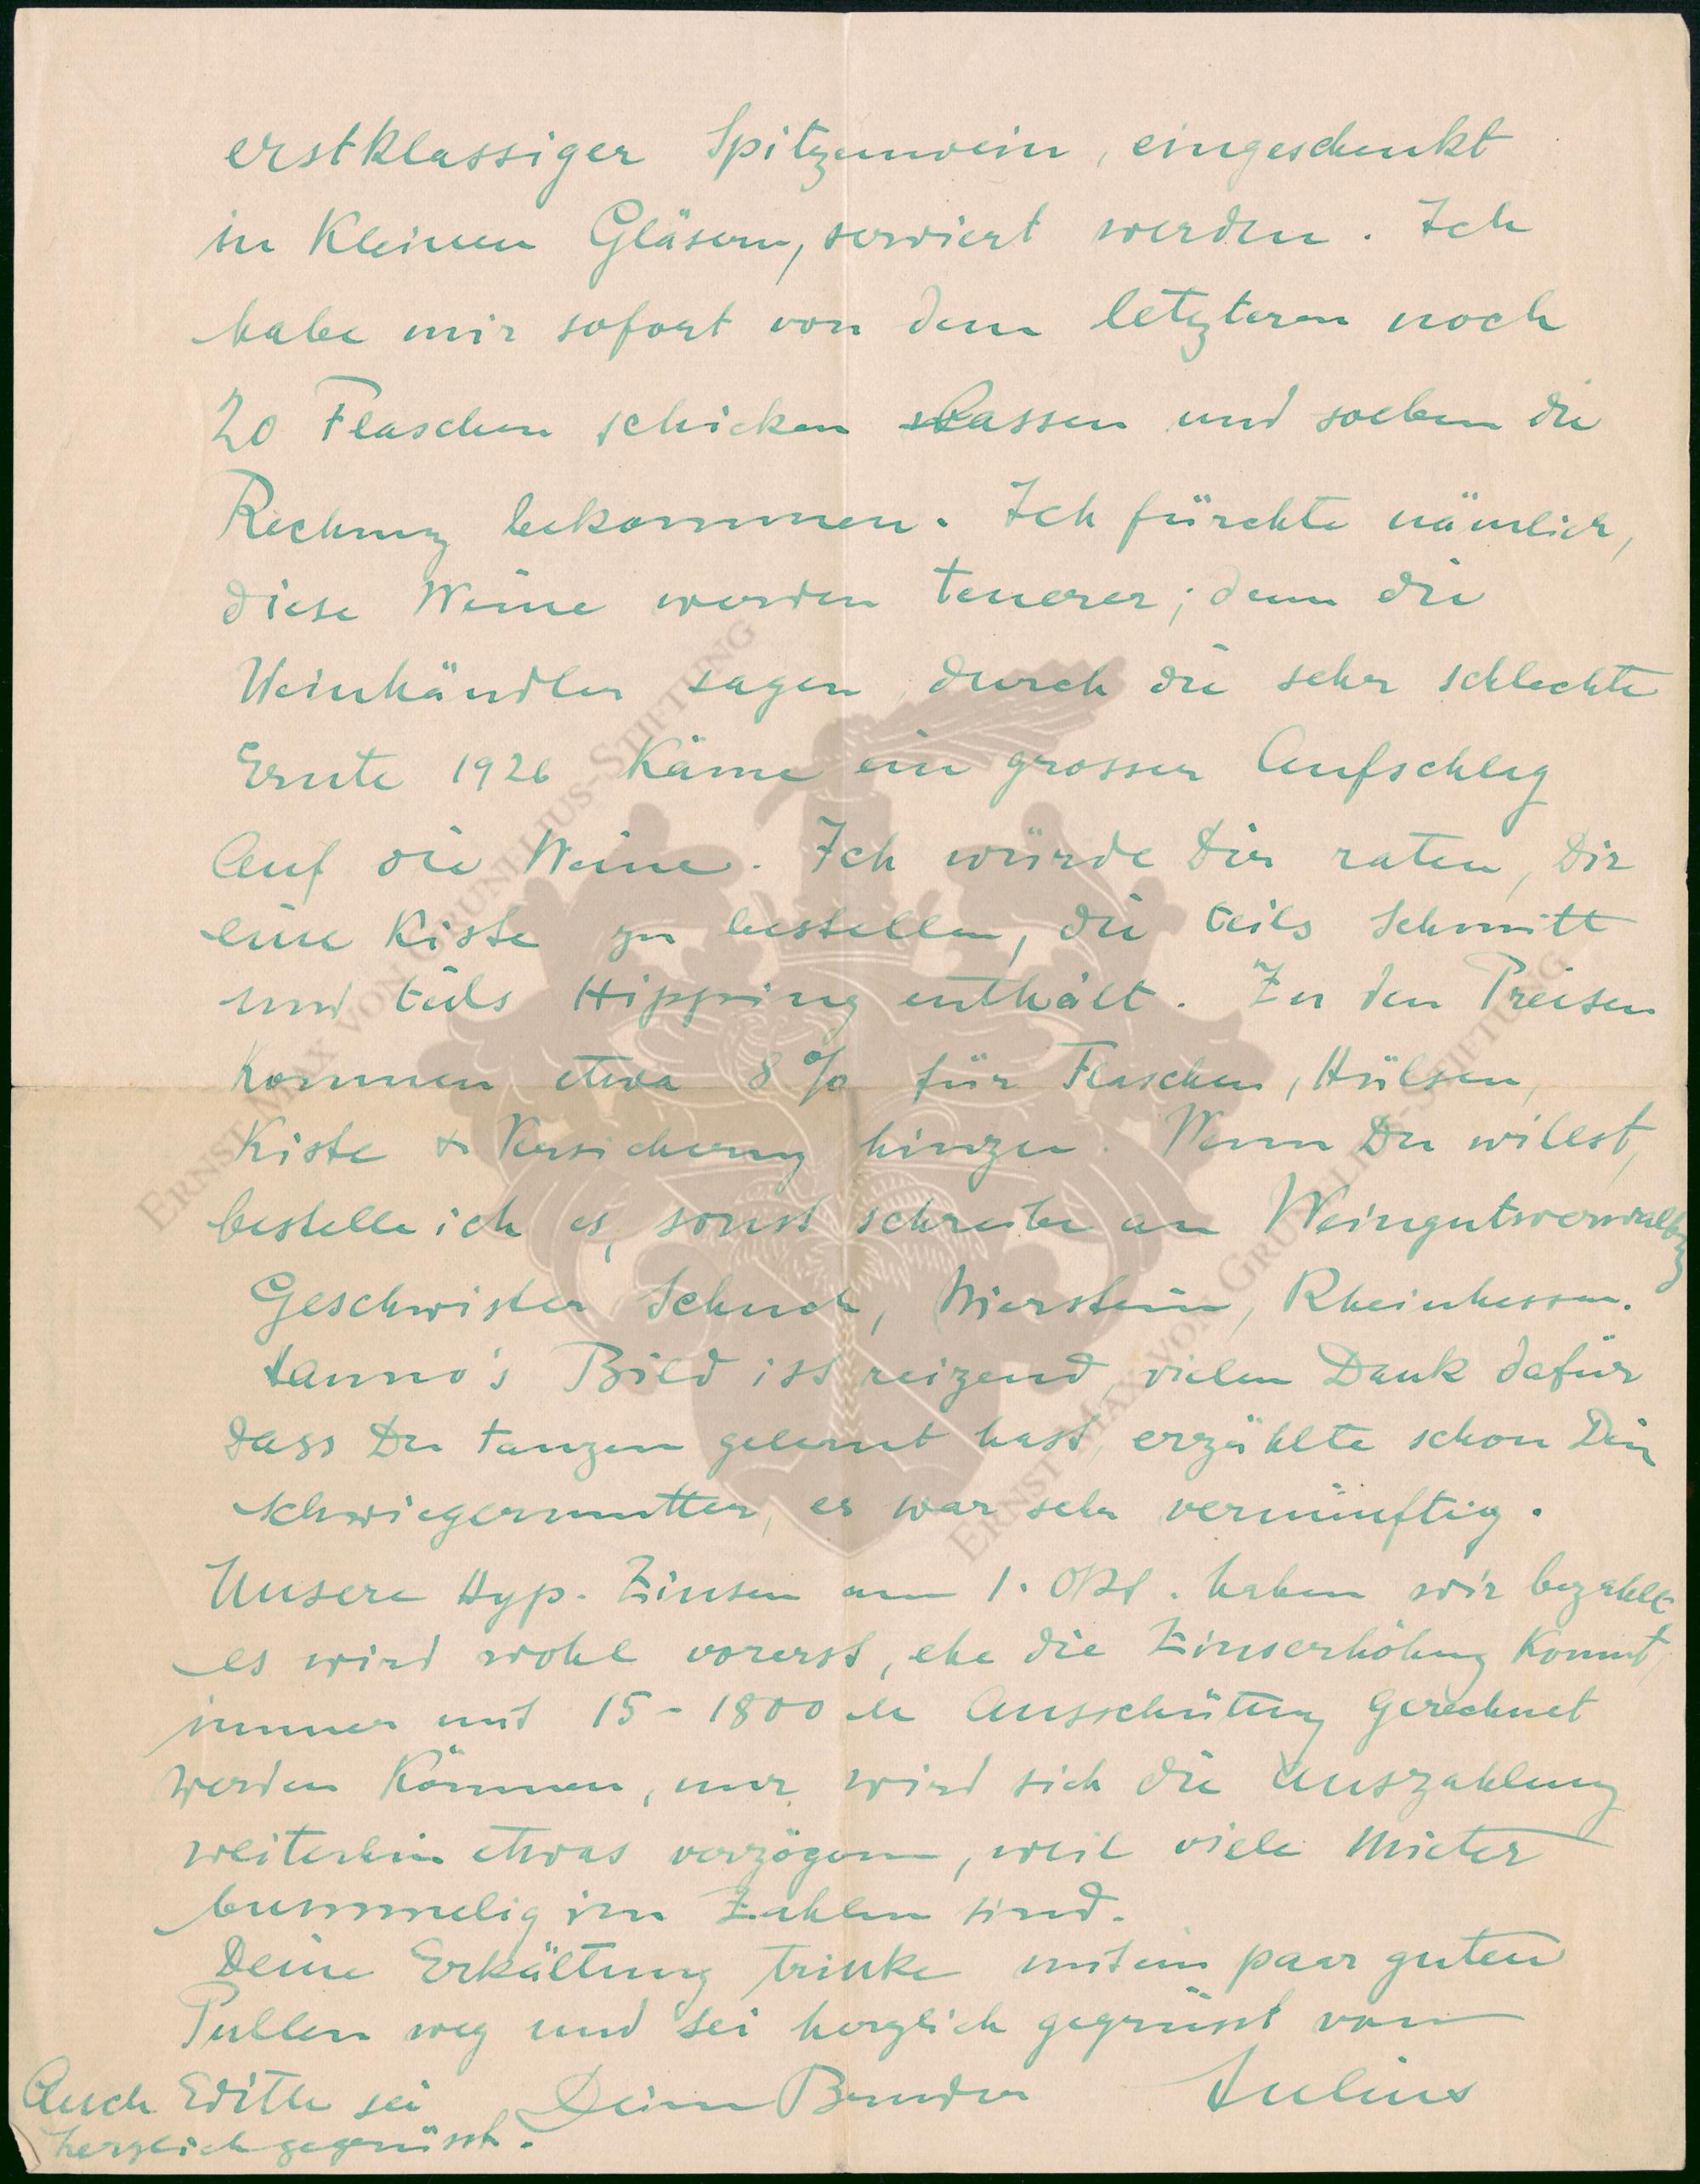 erstklassiger Spitzenwein, eingeschenkt
in kleinen Gläsern, serviert werden. Ich
habe mir sofort von dem letzteren noch
20 Flaschen schicken lassen und soeben die
Rechnung bekommen. Ich fürchte nämlich,
diese Weine werden teuerer; denn die
Weinhändler sagen durch die sehr schlechte
Ernte 1926 käme ein grosser Aufschlag
auf die Weine. Ich würde Dir raten, Dir
eine Kiste zu bestellen, die teils Schmitt
und teils Hipping enthält. Zu den Preisen
kommen etwa 8% für Flaschen, Hülsen,
Kiste & Versicherung hinzu. Wenn Du willst,
bestelle ich es, sonst schreibe an Weingutsverwaltg
Geschwister Schuch, Nierstein, Rheinhessen.
Hanno's Bild ist reizend, vielen Dank dafür
dass Du tanzen gelernt hast, erzählte schon Dein
Schwiegermutter, es war sehr vernünftig.
Unsere Hyp. Zinsen am 1. Okt. haben wir bezahlt
es wird wohl vorerst, ehe die Zinserhöhung kommt,
immer mit 15-1800 M Ausschüttung gerechnet
werden können, nur wird sich die Auszahlung
weiterhin etwas verzögern, weil viele Mieter
bummelig im Zahlen sind.
Deine Erkältung trinke mit ein paar guten
Pullen weg und sei herzlich gegrüsst von
Deinem Bruder Julius
Auch Edith sei
herzlich gegrüsst.
ERNST MAX VON GRUNELIUS-STIFTUNG
ERNST MAX VON GRUNELIUS-STIFTUNG